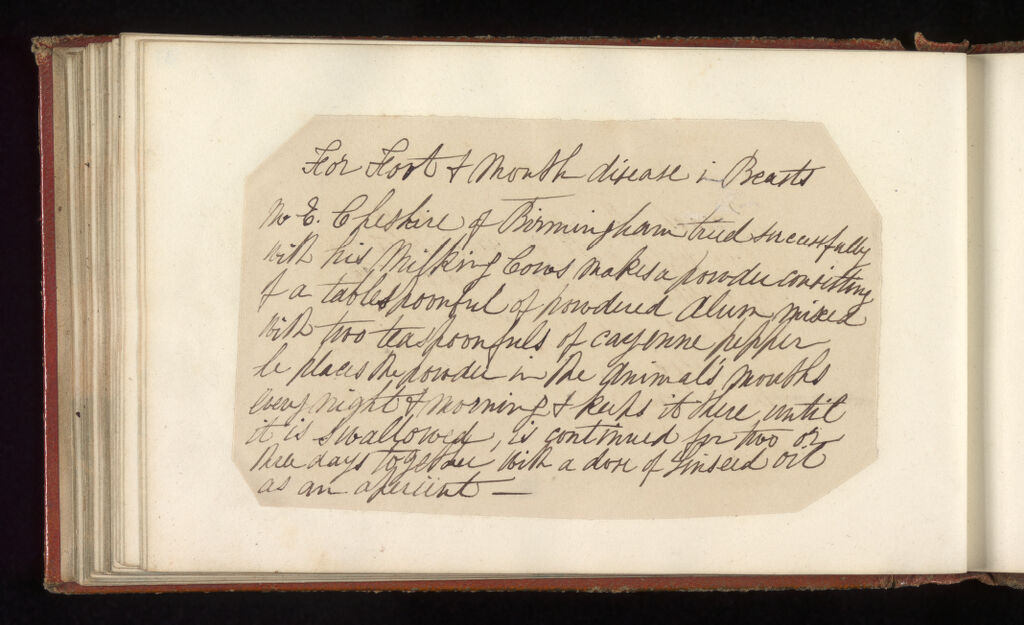 For Foot & Mouth disease in Beasts
Mr E. Cheshire of Birmingham tried successfully
with his Milking Cows makes a powder consisting
of a tablespoonful of powdered Alum mixed
with two teaspoonfuls of cayenne pepper
he places the powder in the Animal's mouths
every night & morning & keeps it there until
it is swallowed, is continued for two or
three days together with a dose of Linseed oil
as an aperient —